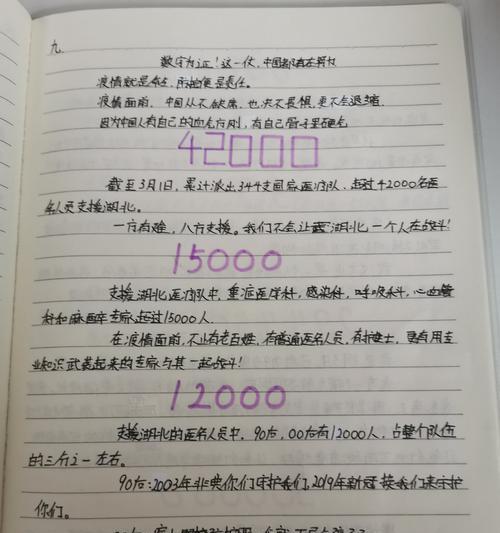 九.
数字为证！这一仗，中国都真在努力
疫情就是命令，防控便是责任。
疫情面前，中国从不缺席，也决不畏惧，更不会退缩.
因为中国人有自己的血气方刚，有自己骨子里硬气
42000
截至3月1日，累计派出344支国家医疗队，超过42000名医
务人员支援湖北。
一方有难，八方支援。我们不会让湖北，一个人在战斗！
15000
支援湖北医疗队中，重症医学科，感染科，呼吸科，心血管
科和麻醉专家超过15000人.
在疫情面前，不止有老百姓，有普通医务人员，有护士，更有用专
业知识武装起来的专家与其一起战斗！
12000
支援湖北的医务人员中，90后，00后有12000人，占整个队伍
的三分之一左右。
90后：2003年非典你们守护我们，2019年新冠换我们来守护
你们。